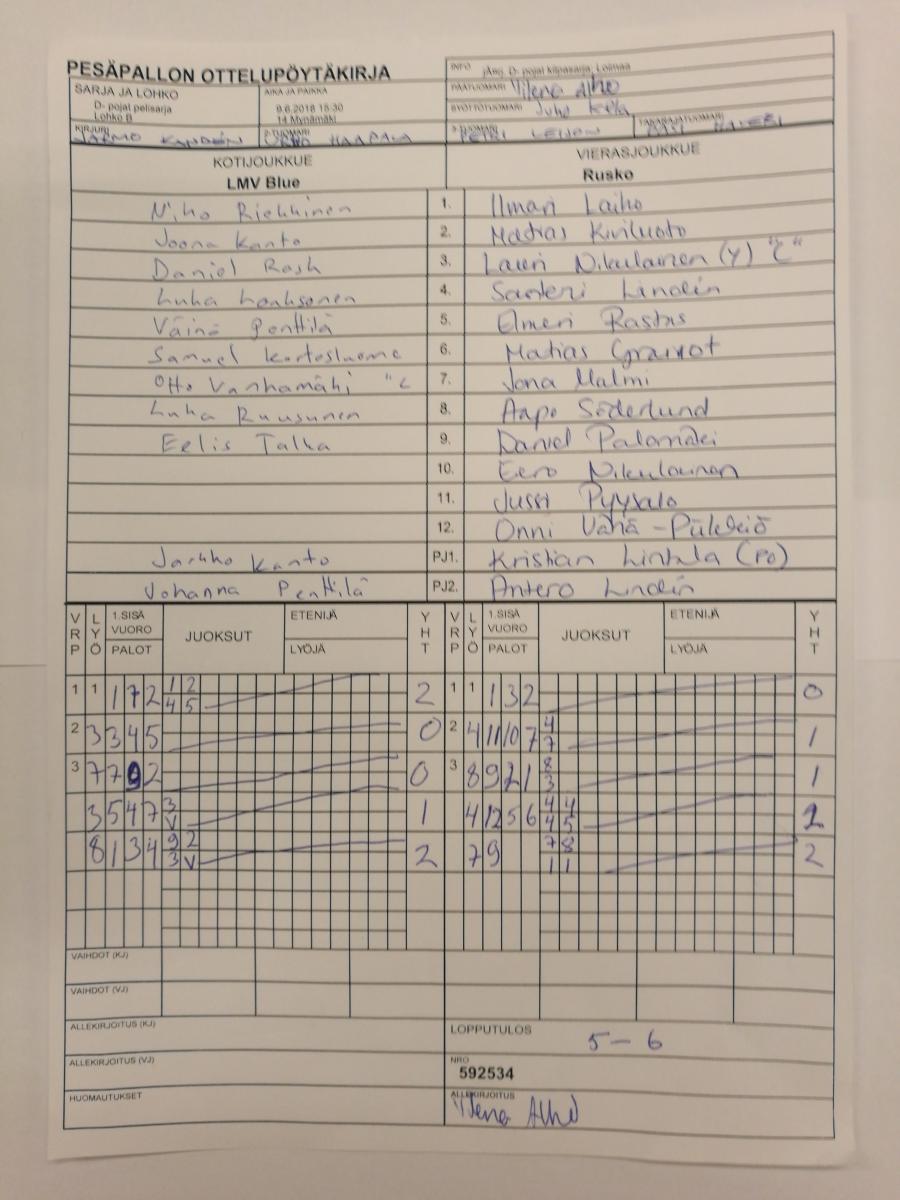 PESÄPALLON OTTELUPÖYTÄKIRJA
INFO jÄng. D- pojat kilpasarja; Loimaa
SARJA JA LOHKO
D- pojat pelisarja
Lohko B
AIKA JA PAIKKA
9.6.2018 15:30
14 Mynämäki
PÄÄTUOMARI Ylena Alho
SYÖTTÖTUOMARI Juho
KIRJURI JARMO
2-TUOMARI HAAPALA
3-TUOMARI PETRI LEIJON
TAKARAJATUOMARI
KOTIJOUKKUE VIERASJOUKKUE
LMV Blue Rusko
Niho Riekkinen 1. Ilmari Laiho
Joona Kanto 2. Matias Kiviluoto
Daniel Rosh 3. Lauri Nikulainen (Y) "C"
Luka Louhsonen 4. Santeri Lindén
Väinö Penttilä 5. Elmeri Rastas
Samuel 6. Matias
Otto Vanhamähi "C 7. Jona Malmi
Luka Ruusunen 8. Aapo Söderlund
Eelis Talka 9. Daniel Palomäki
10. Eero Nikulainen
11. Jussi Pyysalo
12. Onni Vähä-
Jarkko Kanto PJ1. Kristian Lintula (PO)
Johanna Penttilä PJ2. Antero Lindén
VRP LYÖ 1.SISÄ VUORO PALOT JUOKSUT ETENIJÄ LYÖJÄ YHT VRP LYÖ 1.SISÄ VUORO PALOT JUOKSUT ETENIJÄ LYÖJÄ YHT
1 1 1 7 2 1 2 2 1 1 1 3 2 0
4 5
2 3 3 4 5 0 2 4 11 10 7 4 1
7
3 7 7 9 2 0 3 8 9 2 1 8 1
3
3 5 4 7 3 1 4 12 5 6 4 4 2
V 4 5
8 1 3 4 9 2 2 7 9 7 8 2
3 V 1 1
VAIHDOT (KJ)
VAIHDOT (VJ)
ALLEKIRJOITUS (KJ) LOPPUTULOS
5 - 6
ALLEKIRJOITUS (VJ) NRO
592534
HUOMAUTUKSET ALLEKIRJOITUS
Ylena Alho